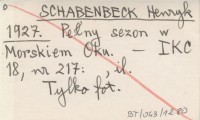 SCHABENBECK Henryk
1927. Pełny sezon w
Morskiem Oku. – IKC
18, nr 217: , il.
Tylko fot.
BT/063/1200